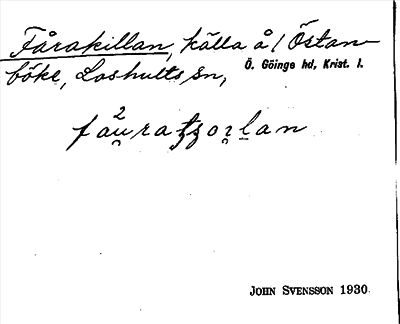 Fårakillan, källa å / Östan-
böke, Loshults sn, Ö. Göinge hd, Krist. l.
JOHN SVENSSON 1930.